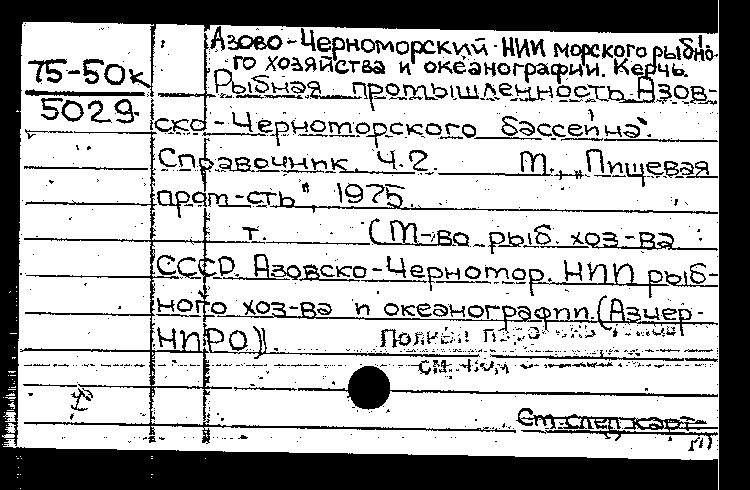 Азово-Черноморский НИИ морского рыбно-
го хозяйства и океанографии. Керчь.
75-50к
5029
Рыбная промышленность Азов-
ско-Черноморского бассейна.
Справочник. Ч.2. М., „Пищевая
пром-сть", 1975.
т. (М-во рыб. хоз-ва
СССР. Азовско-Черномор. НИИ рыб-
ного хоз-ва и океанографии. (Азчер-
НИРО)).
см.
См. след. карт.